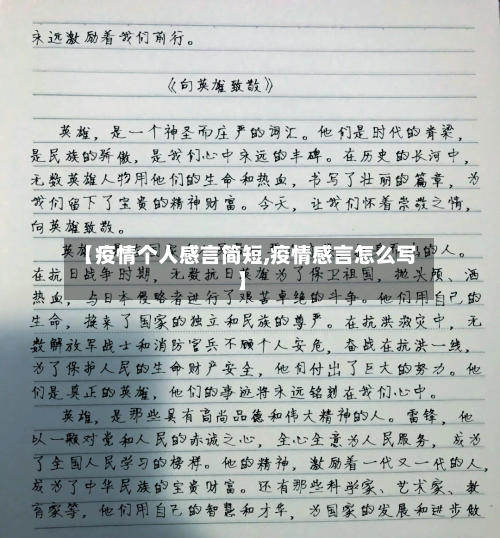 永远激励着我们前行。
《向英雄致敬》
英雄，是一个神圣而庄严的词汇。他们是时代的脊梁，
是民族的骄傲，是我们心中永远的丰碑。在历史的长河中，
无数英雄人物用他们的生命和热血，书写了壮丽的篇章，为
我们留下了宝贵的精神财富。今天，让我们怀着崇敬之情，
向英雄致敬。
英雄
的人。
【疫情个人感言简短,疫情感言怎么写
】
在抗日战争时期，无数抗日英雄为了保卫祖国，抛头颅、洒
热血，与日本侵略者进行了艰苦卓绝的斗争。他们用自己的
生命，换来了国家的独立和民族的尊严。在抗洪救灾中，无
数解放军战士和消防官兵不顾个人安危，奋战在抗洪一线，
为了保护人民的生命财产安全，他们付出了巨大的努力。他
们是真正的英雄，他们的事迹将永远铭刻在我们心中。
英雄，是那些具有高尚品德和伟大精神的人。雷锋，他
以一颗对党和人民的赤诚之心，全心全意为人民服务，成为
了全国人民学习的榜样。他的精神，激励着一代又一代的人，
成为了中华民族的宝贵财富。还有那些科学家、艺术家、教
育家等，他们用自己的智慧和才华，为国家的发展和进步做